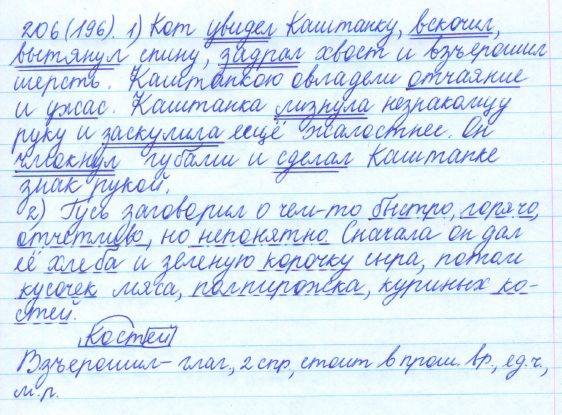 206(196). 1) Кот увидел Каштанку, вскочил,
вытянул спину, задрал хвост и взъерошил
шерсть. Каштанкою овладели отчаяние
и ужас. Каштанка лизнула незнакомцу
руку и заскулила ещё жалостнее. Он
чмокнул губами и сделал Каштанке
знак рукой.
2) Гусь заговорил о чем-то быстро, горячо,
отчетливо, но непонятно. Сначала он дал
её хлеба и зеленую корочку сыра, потом
кусочек мяса, полпирожка, куриных ко-
стей.
Костей
Взъерошил - глаг, 2 спр, стоит в прош. вр, ед. ч,
м. р.